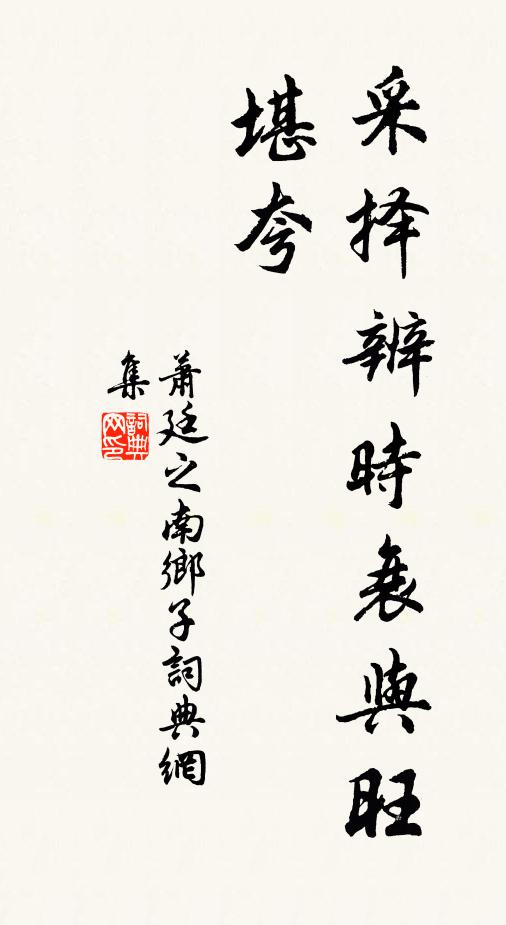 采择辨時衰與旺
堪夸
萧廷之南鄉子詞典網
集
詞典
网印